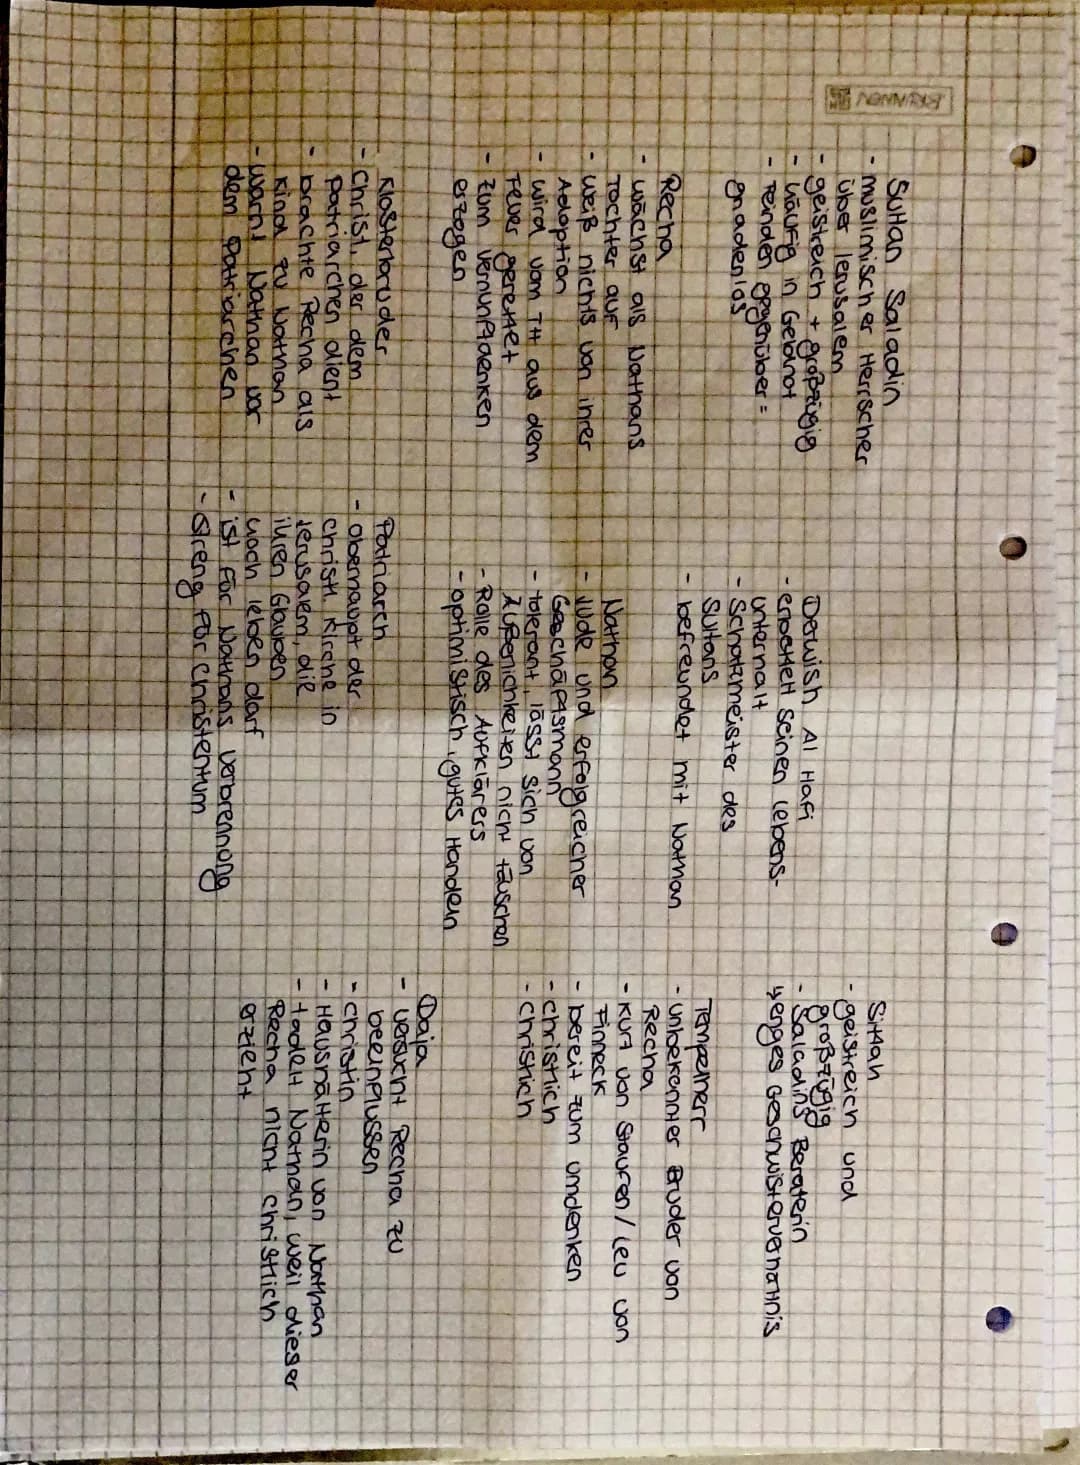 BRUNNEN
Sultan Saladin
- muslimischer Herrscher
über Jerusalem
- geistreich + großzügig
- häufig in Geldnot
- Feinden gegenüber =
gnadenlos
Derwish Al Hafi
- erbettelt seinen lebens-
unterhalt
- Schatzmeister des
Sultans
- befreundet mit Nathan
Sittah
- geistreich und
großzügig
- Saladins Beraterin
↳ enges Geschwisterverhältnis
Recha
- wächst als Nathans
Tochter auf
- weiß nichts von ihrer
Adoption
- wird vom TH aus dem
Feuer gerettet
- zum Vernunftdenken
erzogen
Nathan
- Jude und erfolgreicher
Geschäftsmann
- tolerant, lässt sich von
Äußerlichkeiten nicht täuschen
- Rolle des Aufklärers
- optimistisch, gutes Handeln
Tempelherr
- unbekannter Bruder von
Recha
- Kurt von Staufen / Leu von
Finneck
- bereit zum umdenken
- christlich
- christlich
Klosterbruder
- Christ, der dem
Patriarchen dient
- brachte Recha als
Kind zu Nathan
- warnt Nathan vor
dem Patriarchen
Patriarch
- oberhaupt der
christl. Kirche in
Jerusalem, die
ihren Glauben
noch leben darf
- ist für Nathans verbrennung
- streng für Christentum
Daja
- versucht Recha zu
beeinflussen
- christin
- Haushälterin von Nathan
- tadelt Nathan, weil dieser
Recha nicht christlich
erzieht